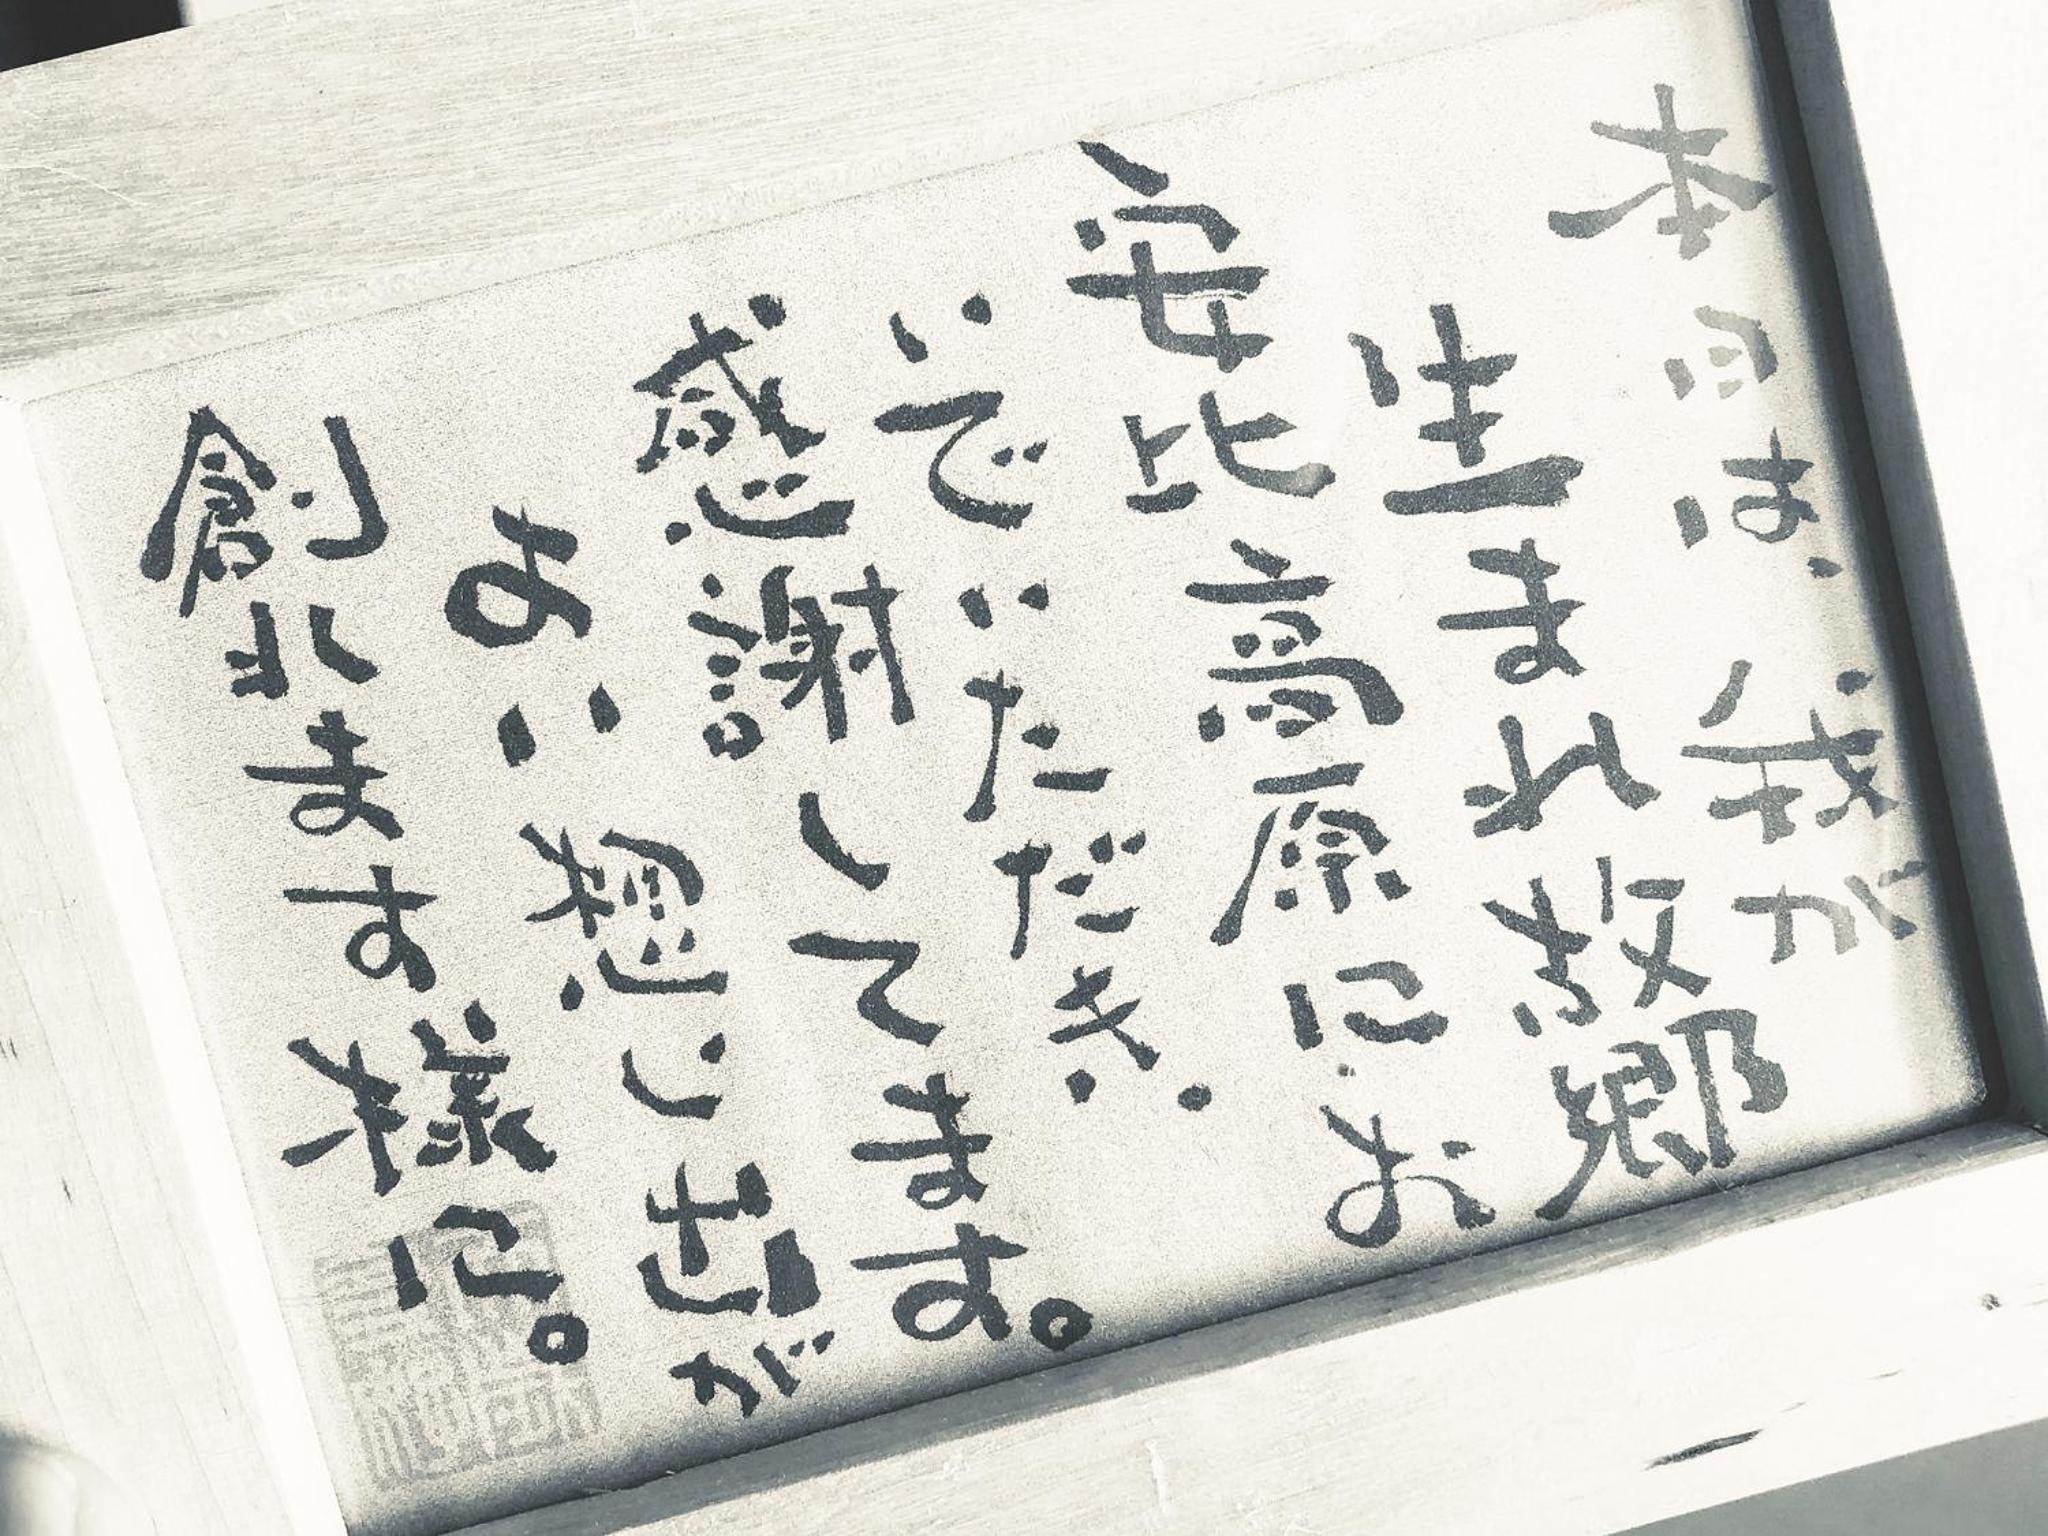 本日は、我が
生まれ故郷
安比高原にお
いでいただき、
感謝してます。
よい想い出が
創れます様に。